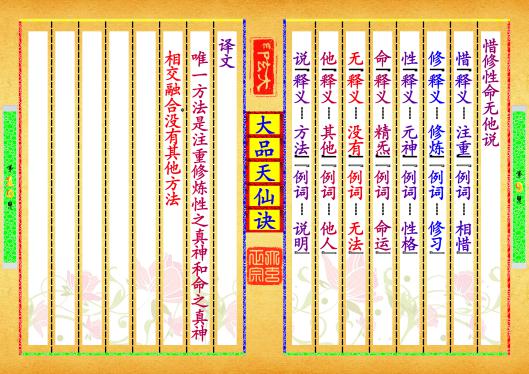 惜修性命无他说
惜〖释义┅注重〗〖例词┅相惜〗
修〖释义┅修炼〗〖例词┅修习〗
性〖释义┅元神〗〖例词┅性格〗
命〖释义┅精炁〗〖例词┅命运〗
无〖释义┅没有〗〖例词┅无法〗
他〖释义┅其他〗〖例词┅他人〗
说〖释义┅方法〗〖例词┅说明〗
大品天仙诀
译文
唯一方法是注重修炼性之真神和命之真神
相交融合没有其他方法